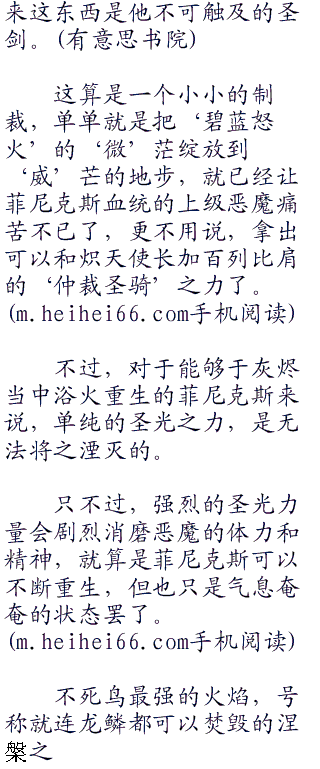 来这东西是他不可触及的圣
剑。(有意思书院)
这算是一个小小的制
裁，单单就是把‘碧蓝怒
火’的‘微’茫绽放到
‘威’芒的地步，就已经让
菲尼克斯血统的上级恶魔痛
苦不已了，更不用说，拿出
可以和炽天使长加百列比肩
的‘仲裁圣骑’之力了。
(m.heihei66.com手机阅读)
不过，对于能够于灰烬
当中浴火重生的菲尼克斯来
说，单纯的圣光之力，是无
法将之湮灭的。
只不过，强烈的圣光力
量会剧烈消磨恶魔的体力和
精神，就算是菲尼克斯可以
不断重生，但也只是气息奄
奄的状态罢了。
(m.heihei66.com手机阅读)
不死鸟最强的火焰，号
称就连龙鳞都可以焚毁的涅
槃之